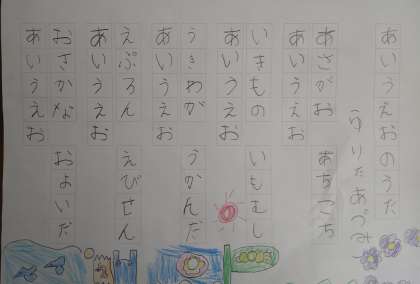 あいうえおのうた
あづみ
あさがお あちこち
あいうえお
いきもの いもむし
あいうえお
うきわが うかんだ
あいうえお
えぷろん えびせん
あいうえお
おさかな およいだ
あいうえお